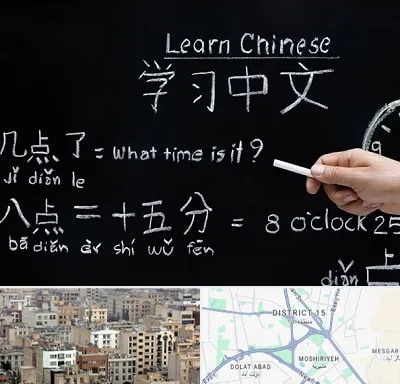 Learn Chinese
学习中文
几点了 = what time is it?
jǐ diǎn le
9
八点二十五分 = 8 o'clock 25
bā diǎn èr shí wǔ fēn
diǎn
DISTRICT 15
منطقه ۱۵
DOLAT ABAD
دولت آباد
MOSHIRIYEH
مشیریه
MESGAR